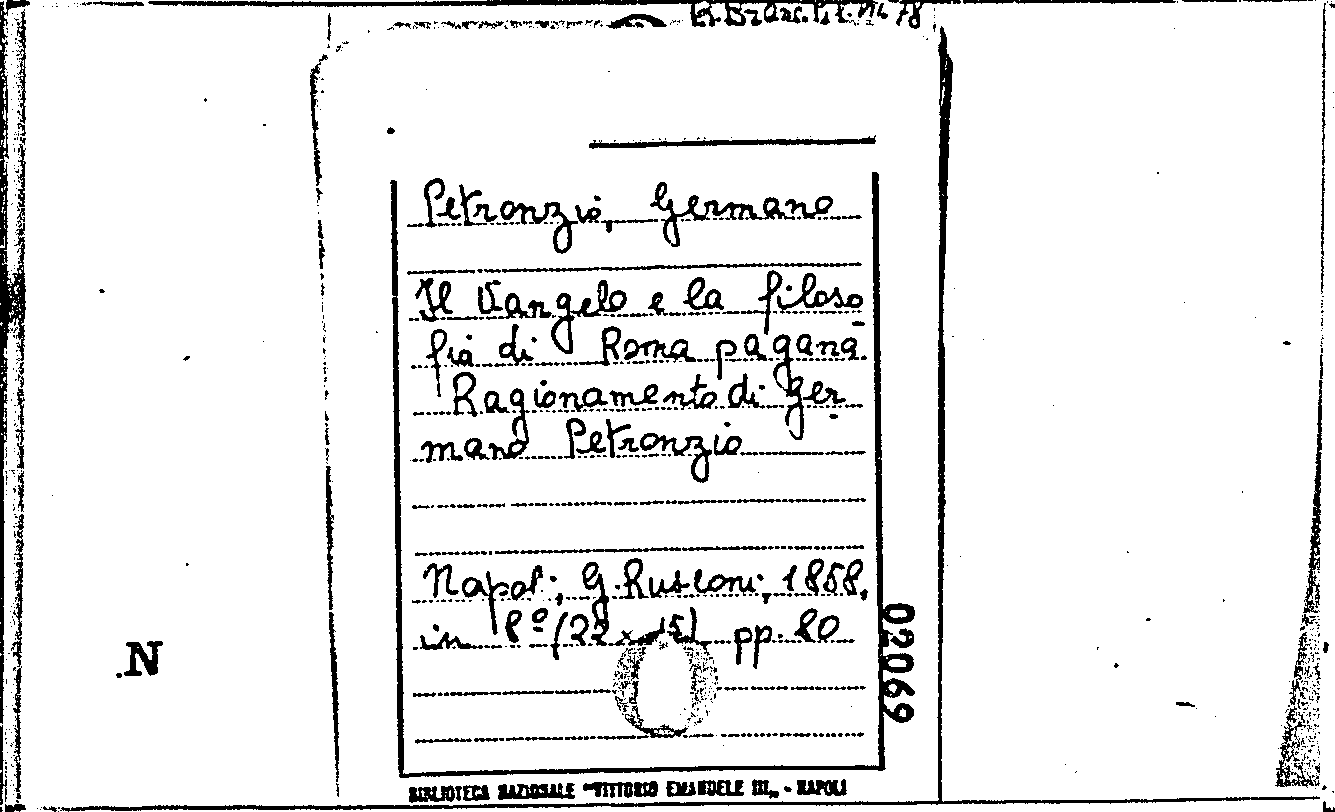 Petronzio, Germano
Il Vangelo e la filoso
fia di Roma pagana.
Ragionamento di Ger
mano Petronzio
Napoli, G. Rusconi, 1858,
in 8º (22 x 15) pp. 80
02069
N
BIBLIOTECA NAZIONALE "VITTORIO EMANUELE III„ - NAPOLI